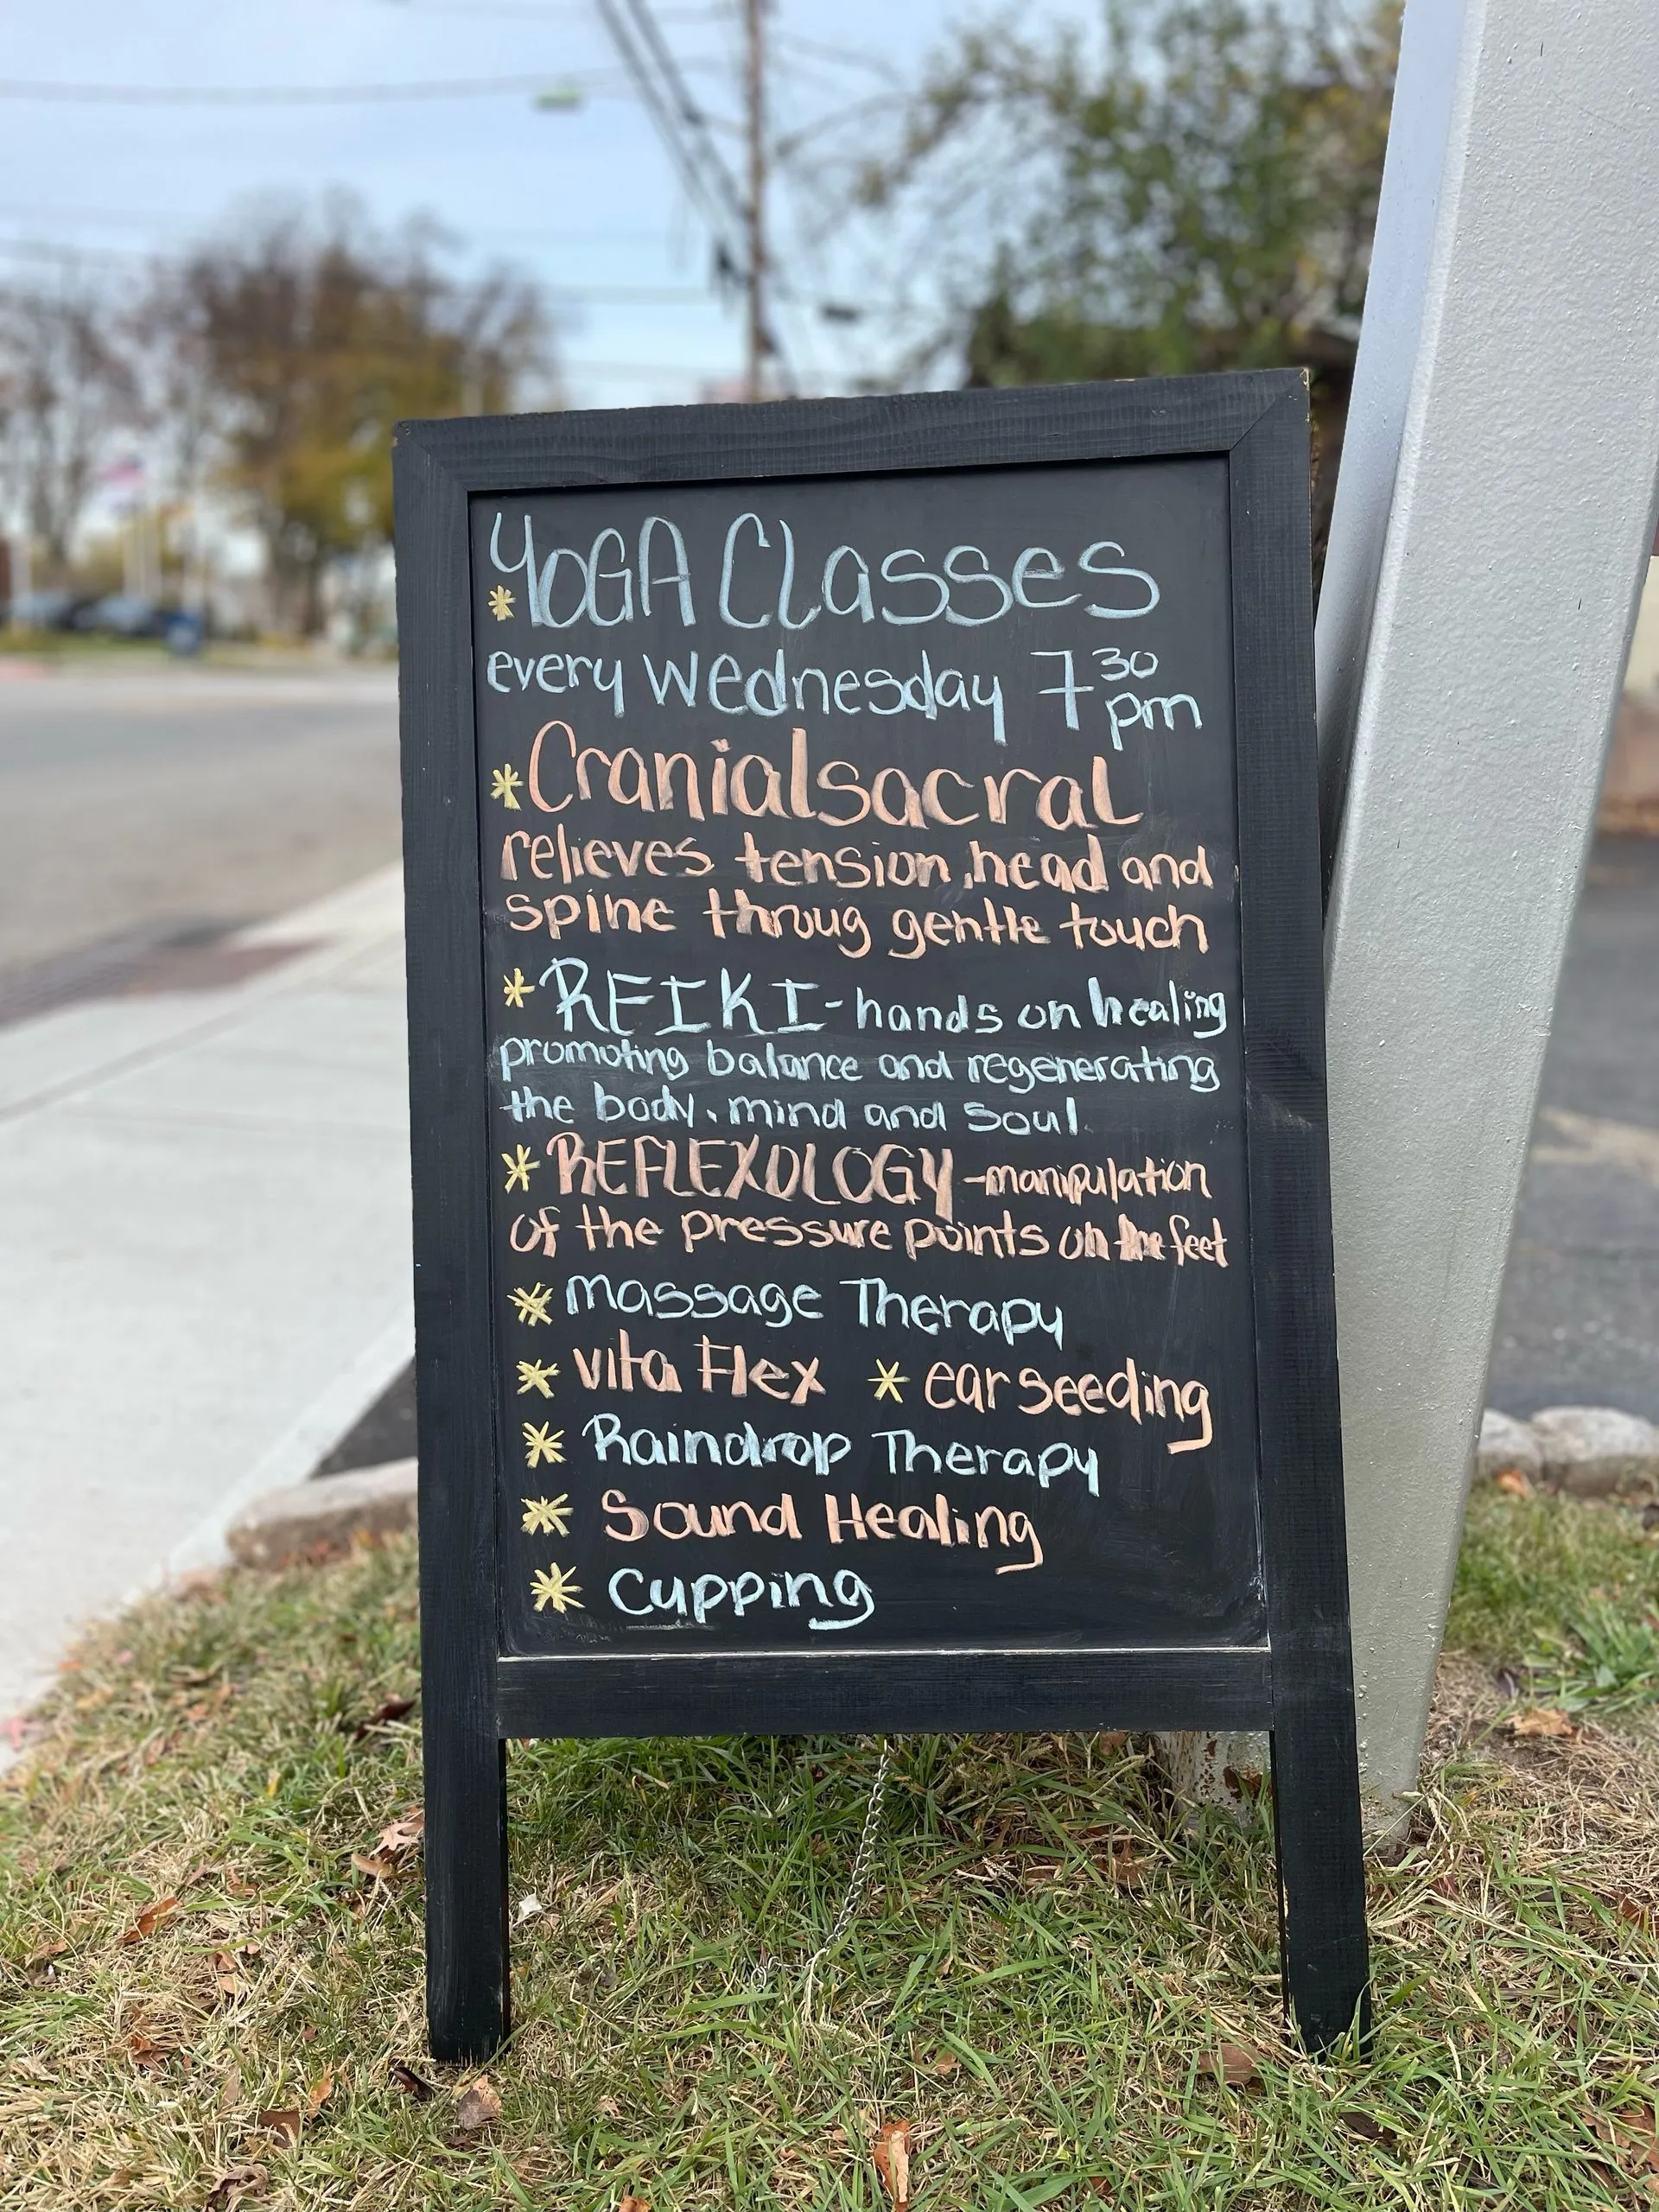 * YOGA Classes
every Wednesday 7 30 pm
* Cranialsacral
relieves tension, head and
spine throug gentle touch
* REIKI - hands on healing
promoting balance and regenerating
the body, mind and soul
* REFLEXOLOGY - manipulation
of the pressure points on the feet
* massage Therapy
* vita Flex * ear seeding
* Raindrop Therapy
* Sound Healing
* Cupping